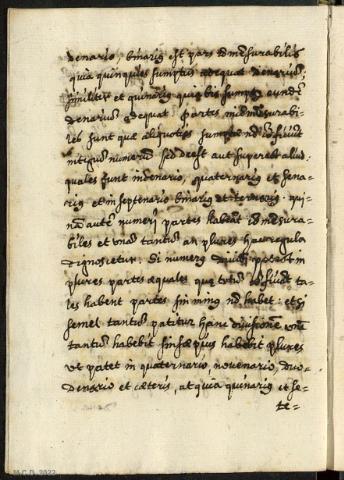 denario, binariꝰ est pars cōmēsurabilis
quia quinquies sumptꝰ adæquat denariū;
similiter et quinariꝰ quia bis sumptꝰ eundē
denariū adequat. Partes incōmēsurabi-
les sunt quæ aliquoties sumptæ nō cōficiūt
integrū numerū sed deest aut superest aliud:
quales sunt in denario, quaternariꝰ et sena-
riꝰ et in septenario binariꝰ et ternariꝰ. qui-
nā autē numeri partes habeāt cōmēsura-
biles et unā tantū an plures hac regula
dignoscetur. Si numerꝰ dividi possit in
plures partes æquales quæ totū cōficiūt ta-
les habent partes sin minꝰ nō habet: et si
semel tantū patitur hanc divisionē unā
tantū habebit sin sæpius habebit plures
ut patet in quaternario novenario, duo-
denario et cæteris, at quia quinariꝰ et se-
te-